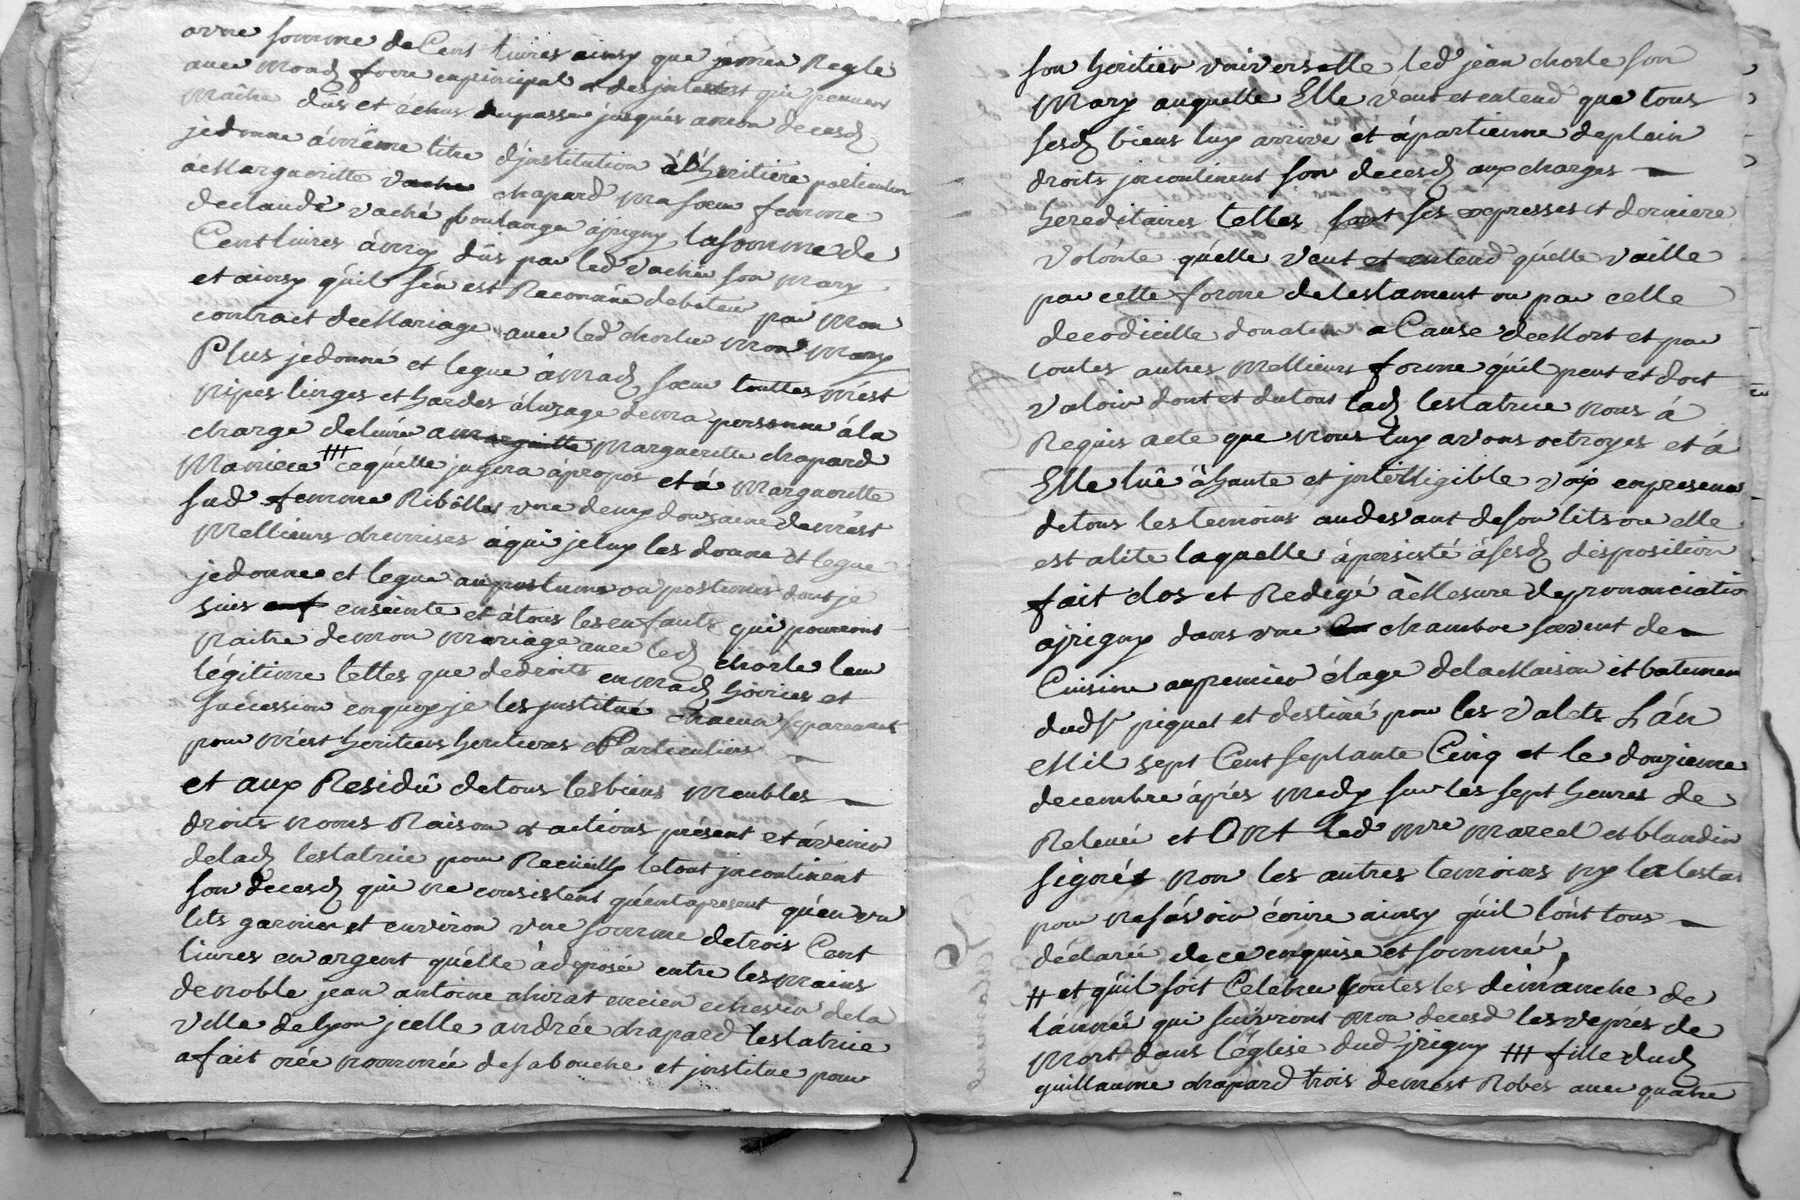 a une somme de Cent livres ainsy que j'en éu Regle
avec mond frere en principal et des jnterest qui peuvent
m'aître dûs et échus du passé jusqués a mon decesd
je donne à même titre d'jnstitution d'héritiere particuliere
à Margueritte vache chapard ma sœur femme
de claude vaché boulanger à jrigny la somme de
Cent livres à moy dûs par led vaché son mary
et ainsy qu'il s'en est Reconnüe debiteur par mon
contract de Mariage avec led chorle mon mary
Plus je donné et legue à mad sœur touttes m'est
nipes linges et hardes à l'uzage de ma personne à la
charge de livré a marguitte Marguerite chapard
Maniere ╫ ce qu'elle jugera à propos et à Marguerite
sud femme Ribôlles une demy douzaine de m'est
mellieurs chemises a qui je luy les donne et legue
je donne et legue au postume ou postumes dont je
suis enf enseinte et à tous les enfants qui pourront
naître de mon mariage avec led chorle leur
légitime telles que de droits en mad hoiries et
succession en quoy je les jnstitue chacun separement
pour m'est heritiers heritieres Particuliers
et aux Residû de tous les biens meubles
droits noms Raison et actions présent et avenir
de lad testatrice pour Recueilly le tout jncontinent
son decesd qui ne consistent qu'ent apresent qu'en un
lits garnier et environ une somme de trois Cent
livres en argent qu'elle à déposée entre les mains
de noble jean antoine chirat encien echevin de la
ville de lyon jcelle andrée chapard testatrice
a fait crée nommée de sa bouche et jnstitue pour
son heritier universelle led jean chorle son
Mary auquelle Elle veut et entend que tous
sesd biens luy arrive et apartienne de plain
droits jncontinent son decesd aux charges
hereditaires telles sont ses expresses et derniere
volonté qu'elle veut et entend qu'elle vaille
par cette forme de testament ou par celle
de codicille donation a Cause de Mort et par
toutes autres mellieurs forme qu'il peut et doit
valoir dont et du tout lad testatrice nous à
Requis acte que nous luy avons octroyes et à
Elle luê à haute et jntelligible voix en presence
de tous les temoins au devant de son lits ou elle
est alité laquelle à persisté à sesd disposition
fait clos et Redigé à Mesure de prononciation
a jrigny dans une chambre servent de
Cuisine au premier étage de la Maison et batimen
dud Sr piquet et destiné pour les valets L'an
Mil sept Cent septante Cinq et le douzieme
decembre après midy sur les sept heures de
Relevée et Ont led mre marcel et blandin
signés non les autres temoins ny la testat
pour ne sâvoir écrire ainsy qu'il l'ont tous
déclarée de ce enquise et sommé,
╫ et qu'il soit Celebre toutes les dimanche de
l'année qui suivront mon decesd les vepres de
Mort dans l'église dud jrigny ╫ fille dud
guillaume chapard trois de mest Robes avec quatre